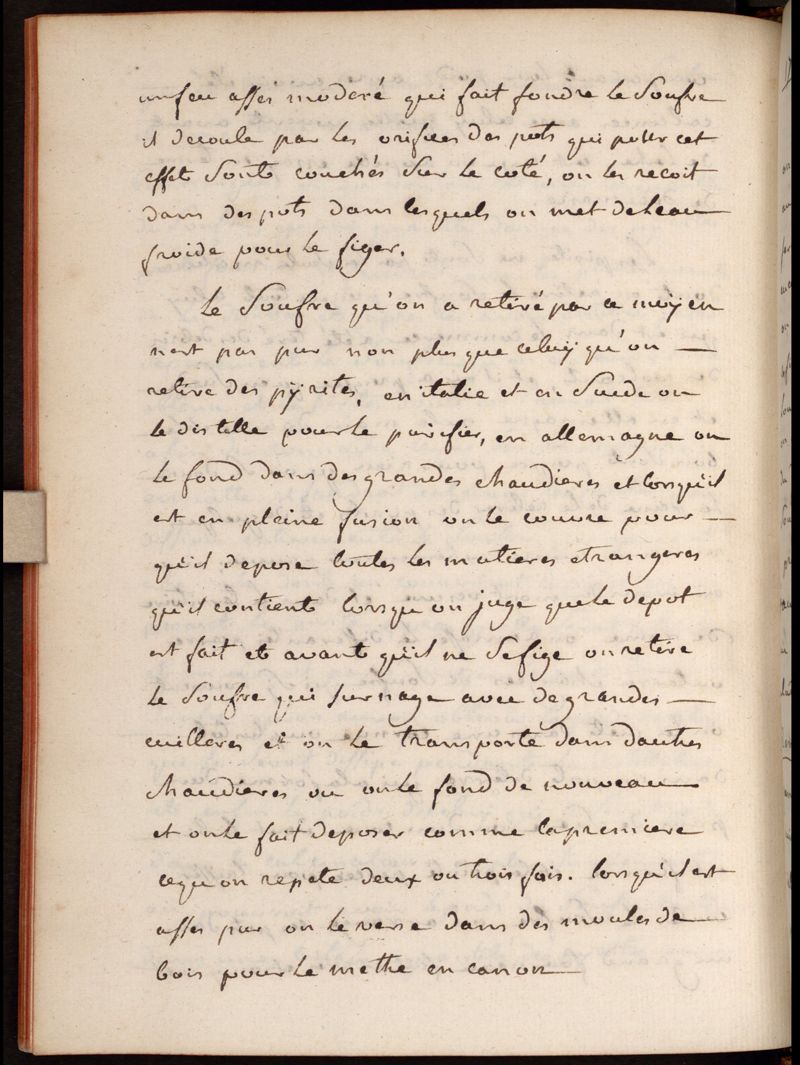 un feu assés moderé qui fait fondre le Soufre
il decoule par les orifices des pots qui pour cet
effet Sont couchés Sur le coté, on les recoit
dans des pots dans lesquels on met de leau
froide pour le figer.
Le Soufre qu'on a retiré par ce moyen
nest pas pur non plus que celuy qu'on —
retire des pyrites, en italie et en Suede on
le distille pour le purifier, en allemagne on
le fond dans des grandes chaudieres et lorsqu'il
est en pleine fusion on le couvre pour —
qu'il depose toutes les matieres etrangeres
qu'il contient lorsqu on juge que le depot
est fait et avant qu'il ne Se fige on retire
le Soufre qui Surnage avec de grandes —
cuilleres et on le transporte dans dautres
chaudieres ou on le fond de nouveau
et on le fait deposer comme la premiere
ce qu on repete deux ou trois fois. lorsqu'il est
assés pur on le verse dans des moules de
bois pour le mettre en canon —